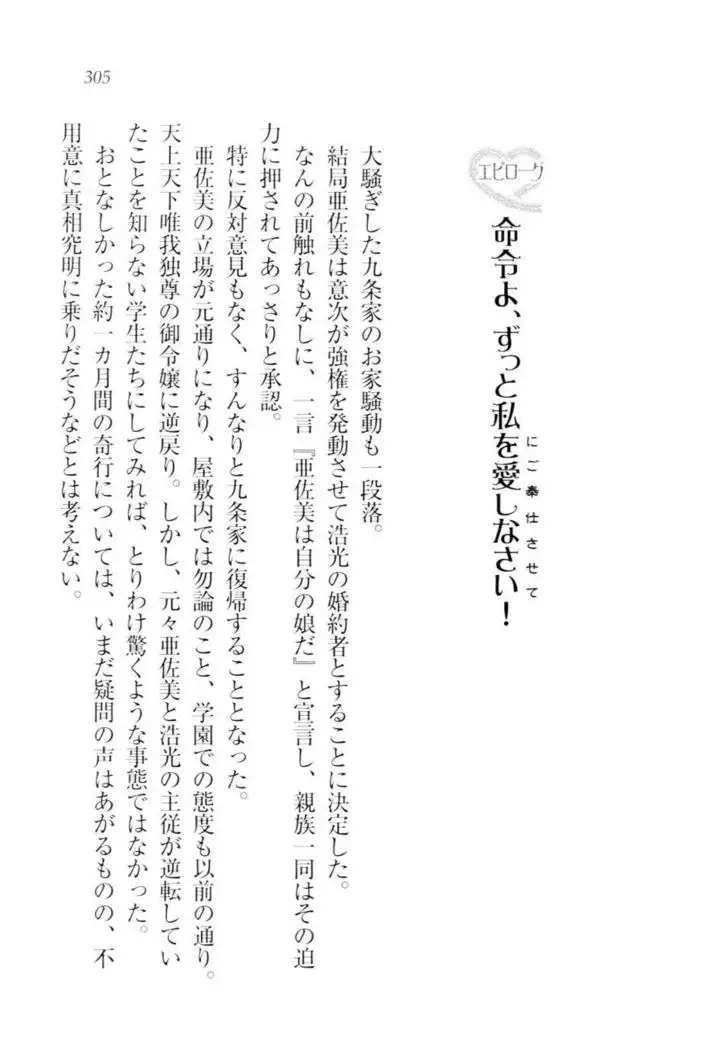 305
エピローグ
命令よ、ずっと私を愛しなさい！
にご奉仕させて
大騒ぎした九条家のお家騒動も一段落。
結局亜佐美は意次が強権を発動させて浩光の婚約者とすることに決定した。
なんの前触れもなしに、一言『亜佐美は自分の娘だ』と宣言し、親族一同はその迫
力に押されてあっさりと承認。
特に反対意見もなく、すんなりと九条家に復帰することとなった。
亜佐美の立場が元通りになり、屋敷内では勿論のこと、学園での態度も以前の通り。
天上天下唯我独尊の御令嬢に逆戻り。しかし、元々亜佐美と浩光の主従が逆転してい
たことを知らない学生たちにしてみれば、とりわけ驚くような事態ではなかった。
おとなしかった約一カ月間の奇行については、いまだ疑問の声はあがるものの、不
用意に真相究明に乗りだそうなどとは考えない。